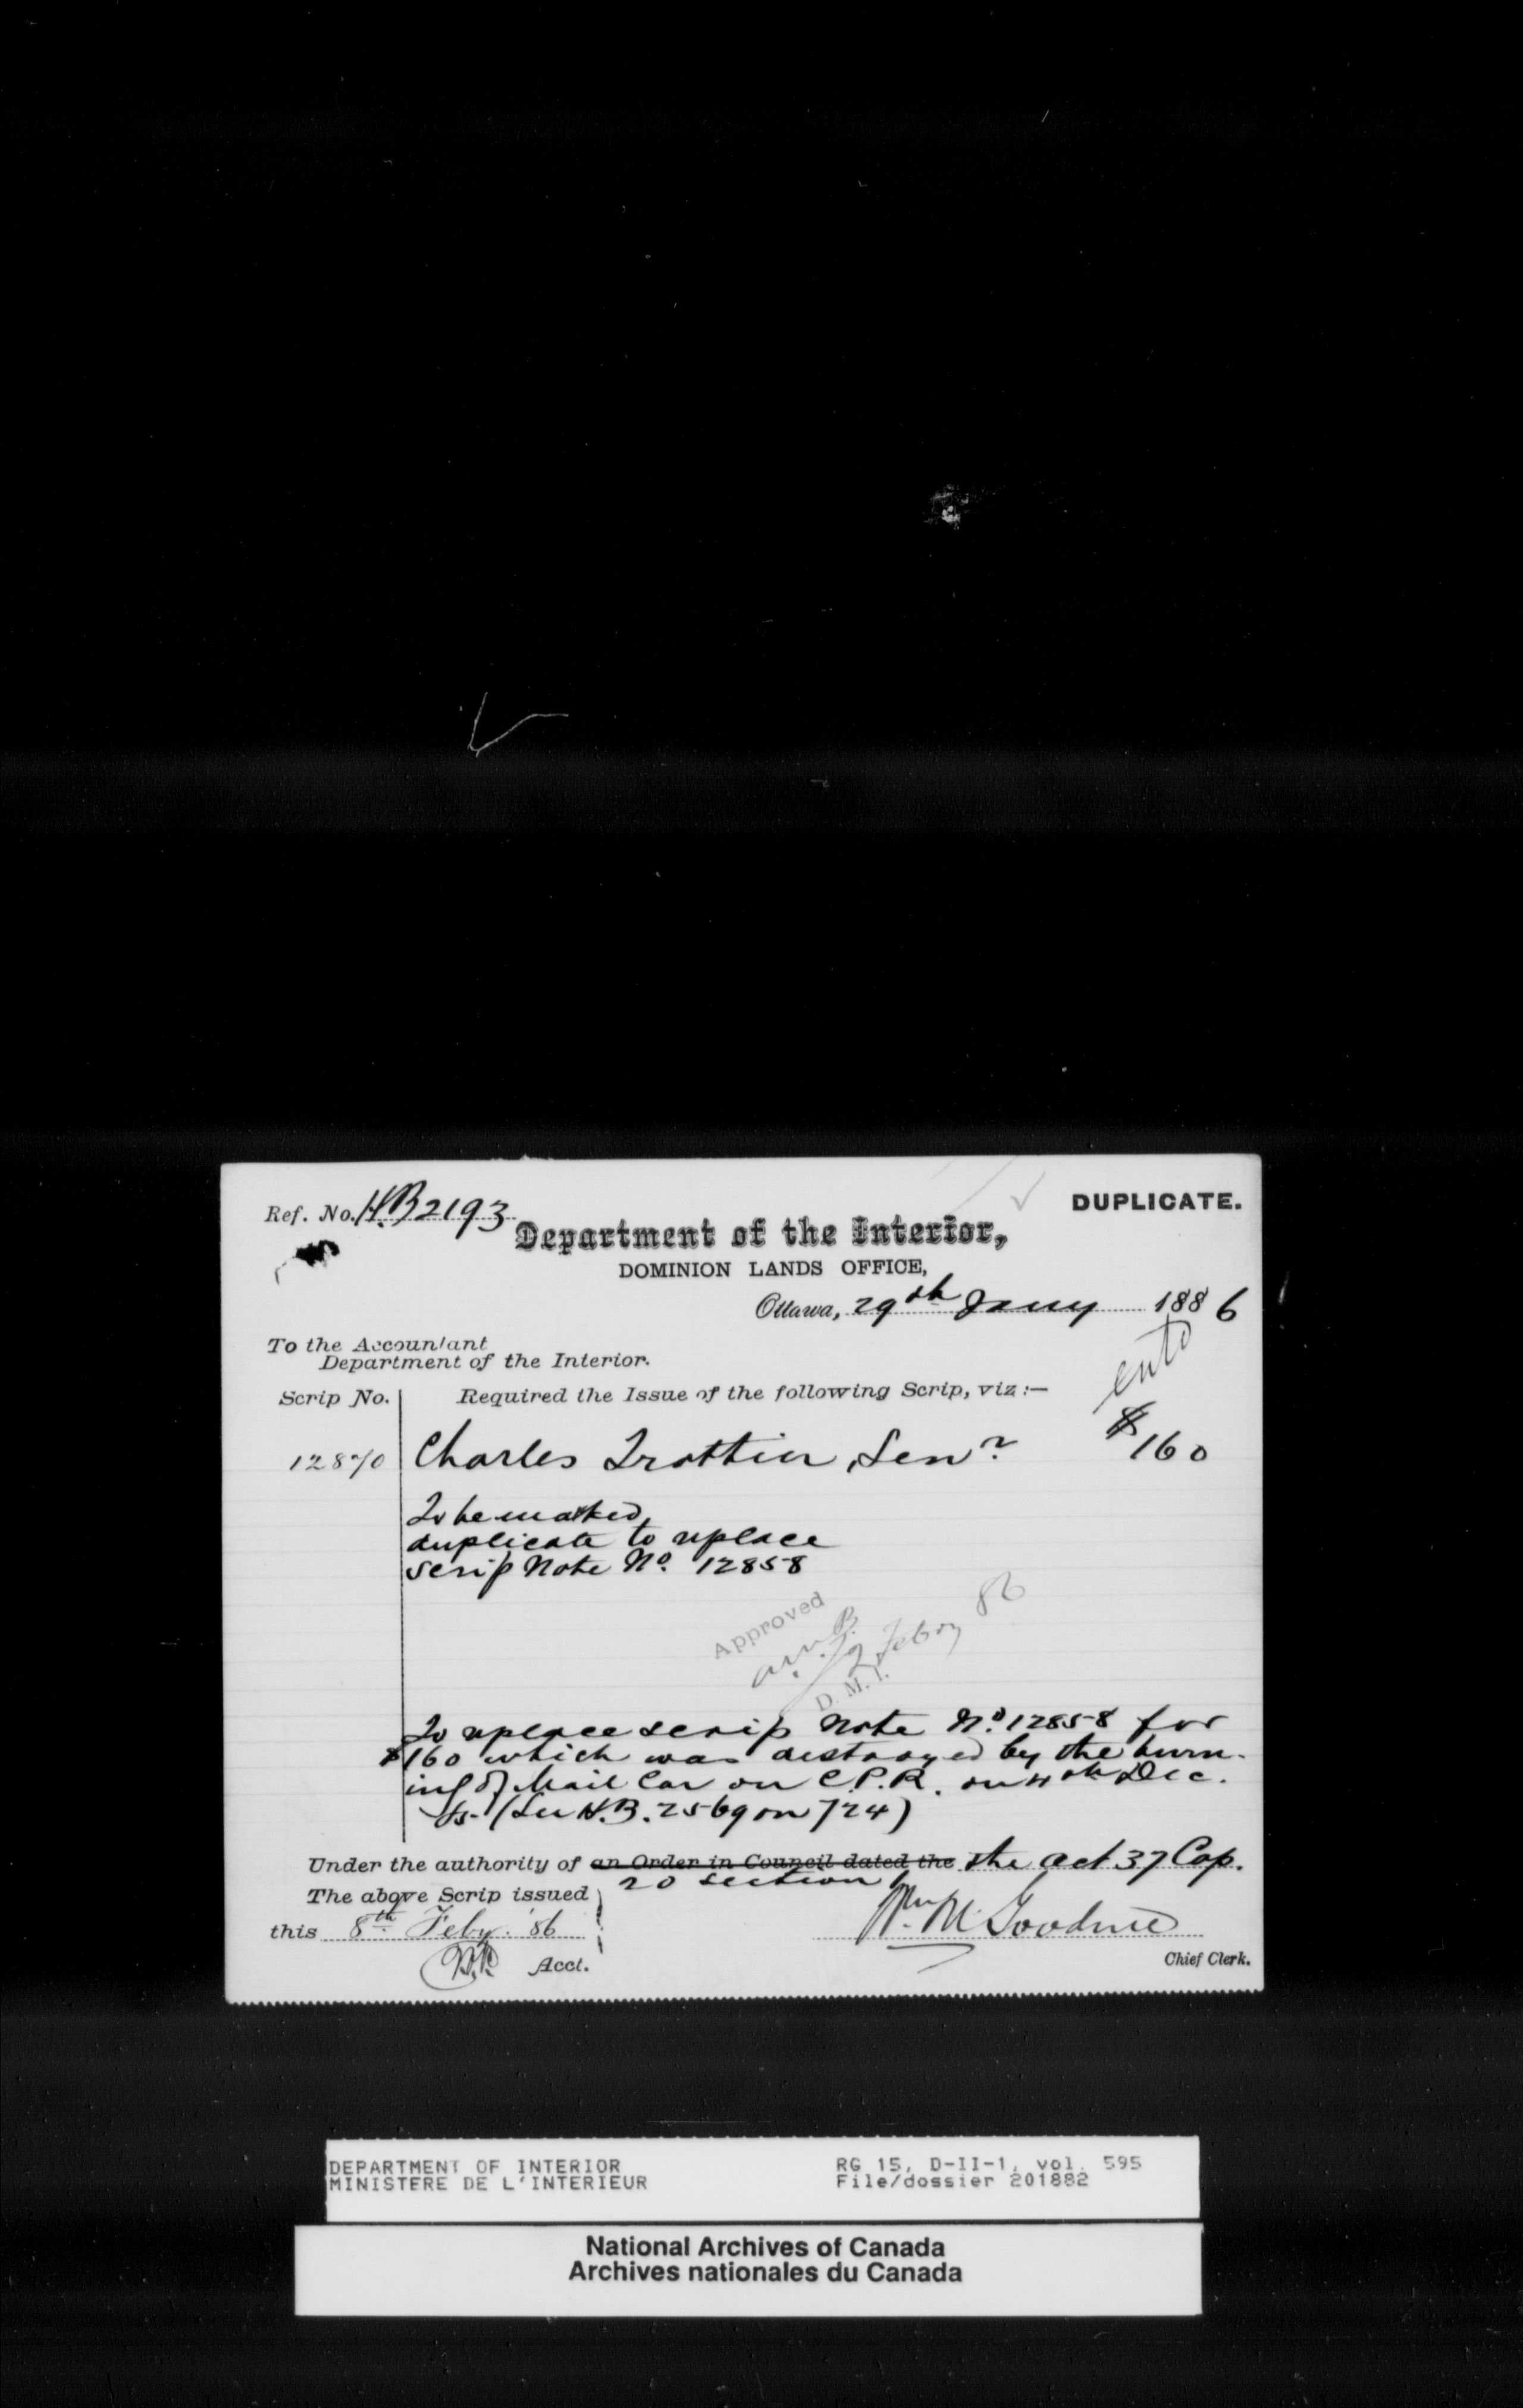 Ref. No. H.B 2193
DUPLICATE.
Department of the Interior,
DOMINION LANDS OFFICE,
Ottawa, 29th Jany 1886
To the Accountant
Department of the Interior.
Scrip No. Required the Issue of the following Scrip, viz:—
12870 Charles Trottier, Senr $160
To be marked
duplicate to replace
scrip note No. 12858
Approved
2 Febry 86
D. M. I.
To replace scrip note No. 12858 for
$160 which was destroyed by the burn-
ing of Mail Car on C.P.R. on 4th Dec.
(See H.B. 2569 on 724)
Under the authority of an Order in Council dated the the Act 37 Cap.
20 section
The above Scrip issued
this 8th Feby. '86
Acct.
Wm. M. Goodeve
Chief Clerk.
DEPARTMENT OF INTERIOR
MINISTERE DE L'INTERIEUR
RG 15, D-II-1, vol. 595
File/dossier 201882
National Archives of Canada
Archives nationales du Canada